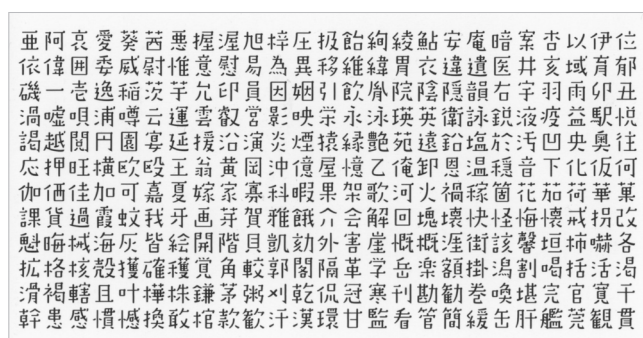 亜阿哀愛葵茜悪握渥旭梓圧扱飴絢綾鮎安庵暗案杏以伊位
依偉囲委威尉惟意慰易為異移維緯胃衣違遺医井亥域育郁
磯一壱逸稲茨芋允印員因姻引飲胤院陰隠韻右宇羽雨卯丑
渦嘘唄浦噂云運雲叡営影映栄永泳瑛英衛詠鋭液疫益駅悦
謁越閲円園宴延援沿演炎煙猿縁艶苑遠鉛塩於汚凹央奥往
応押旺横欧殴王翁黄岡沖億屋憶乙俺卸恩温穏音下化仮何
伽価佳加可嘉夏嫁家寡科暇果架歌河火禍稼箇花茄荷華菓
課貨過霞蚊我牙画芽賀雅餓介会解回塊壊快怪悔懐戒拐改
魁晦械海灰皆絵開階貝凱劾外害崖慨概涯街該馨垣柿嚇各
拡格核殻獲確穫覚角較郭閣隔革学岳楽額掛潟割喝括活渇
滑褐轄且叶樺株鎌茅粥刈乾侃冠寒刊勘勧巻喚堪完官寛干
幹患感慣憾換敢棺款歓汗漢環甘監看管簡緩缶肝艦莞観貫